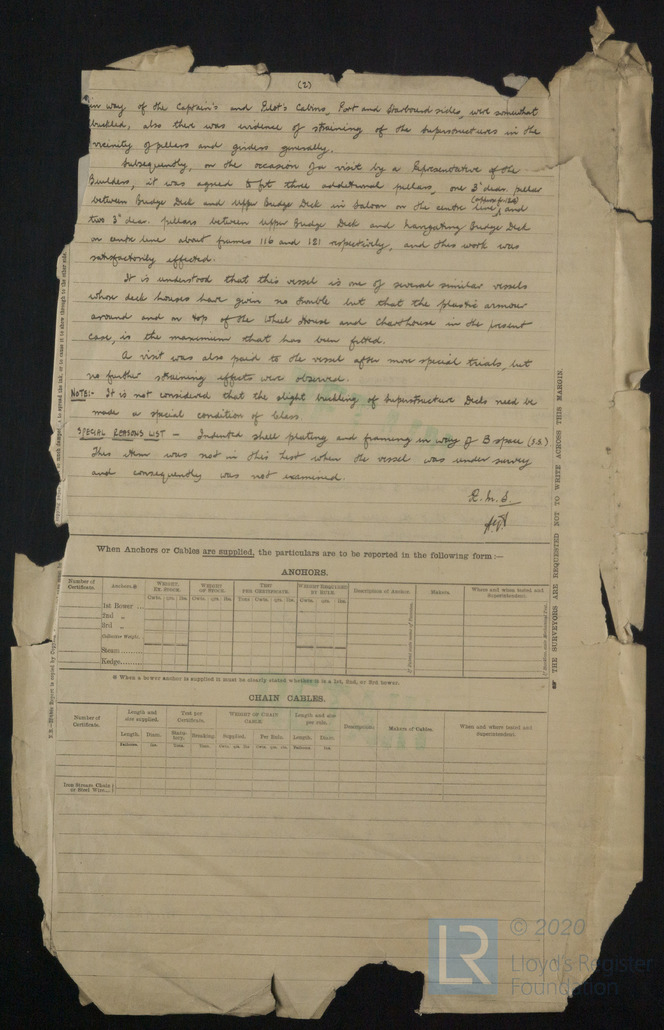 (2)
in way of the Captain's and Pilot's Cabins, Port and Starboard sides, were somewhat
buckled, also there was evidence of straining of the superstructures in the
vicinity of pillars and girders generally.
Subsequently, on the occasion of a visit by a Representative of the
Builders, it was agreed to fit three additional pillars, one 3" diar. pillar
between Bridge Deck and Upper Bridge Deck in Saloon on the centre line, and
two 3" diar. pillars between Upper Bridge Deck and Navigating Bridge Deck
on centre line about frames 116 and 121 respectively, and this work was
satisfactorily effected.
It is understood that this vessel is one of several similar vessels
whose deck houses have given no trouble but that the plastic armour
around and on top of the Wheel House and Charthouse in the present
case, is the maximum that has been fitted.
A visit was also paid to the vessel after more special trials, but
no further straining effects were observed.
NOTE:- It is not considered that the slight buckling of Superstructure Decks need be
made a special condition of Class.
SPECIAL REASONS LIST - Indented shell plating and framing in way of B space (S.S.).
This item was not in this list when the vessel was under survey
and consequently was not examined.
When Anchors or Cables are supplied, the particulars are to be reported in the following form :—
ANCHORS.
Number of Certificate.
Anchors.
WEIGHT, EX. STOCK.
WEIGHT OF STOCK.
TEST PER CERTIFICATE.
WEIGHT REQUIRED BY RULE.
Description of Anchor.
Makers.
Where and when tested and Superintendent.
Cwts. qrs. lbs. Cwts. qrs. lbs. Tons Cwts. qrs. lbs. Cwts. qrs. lbs.
1st Bower
2nd „
3rd „
Collective Weight.
Stream
Kedge
※ When a bower anchor is supplied it must be clearly stated whether it is a 1st, 2nd, or 3rd bower.
CHAIN CABLES.
Number of Certificate.
Length and size supplied.
Test per Certificate.
WEIGHT OF CHAIN CABLE.
Length and size per rule.
Description.
Makers of Cables.
When and where tested and Superintendent.
Length. Diam. Statutory. Breaking. Supplied. Per Rule. Length. Diam.
Iron Stream Chain or Steel Wire
THE SURVEYORS ARE REQUESTED NOT TO WRITE ACROSS THIS MARGIN.
LR
© 2020
Lloyd's Register
Foundation